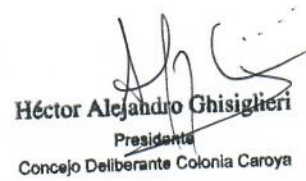 Héctor Alejandro Ghisiglieri
Presidente
Concejo Deliberante Colonia Caroya